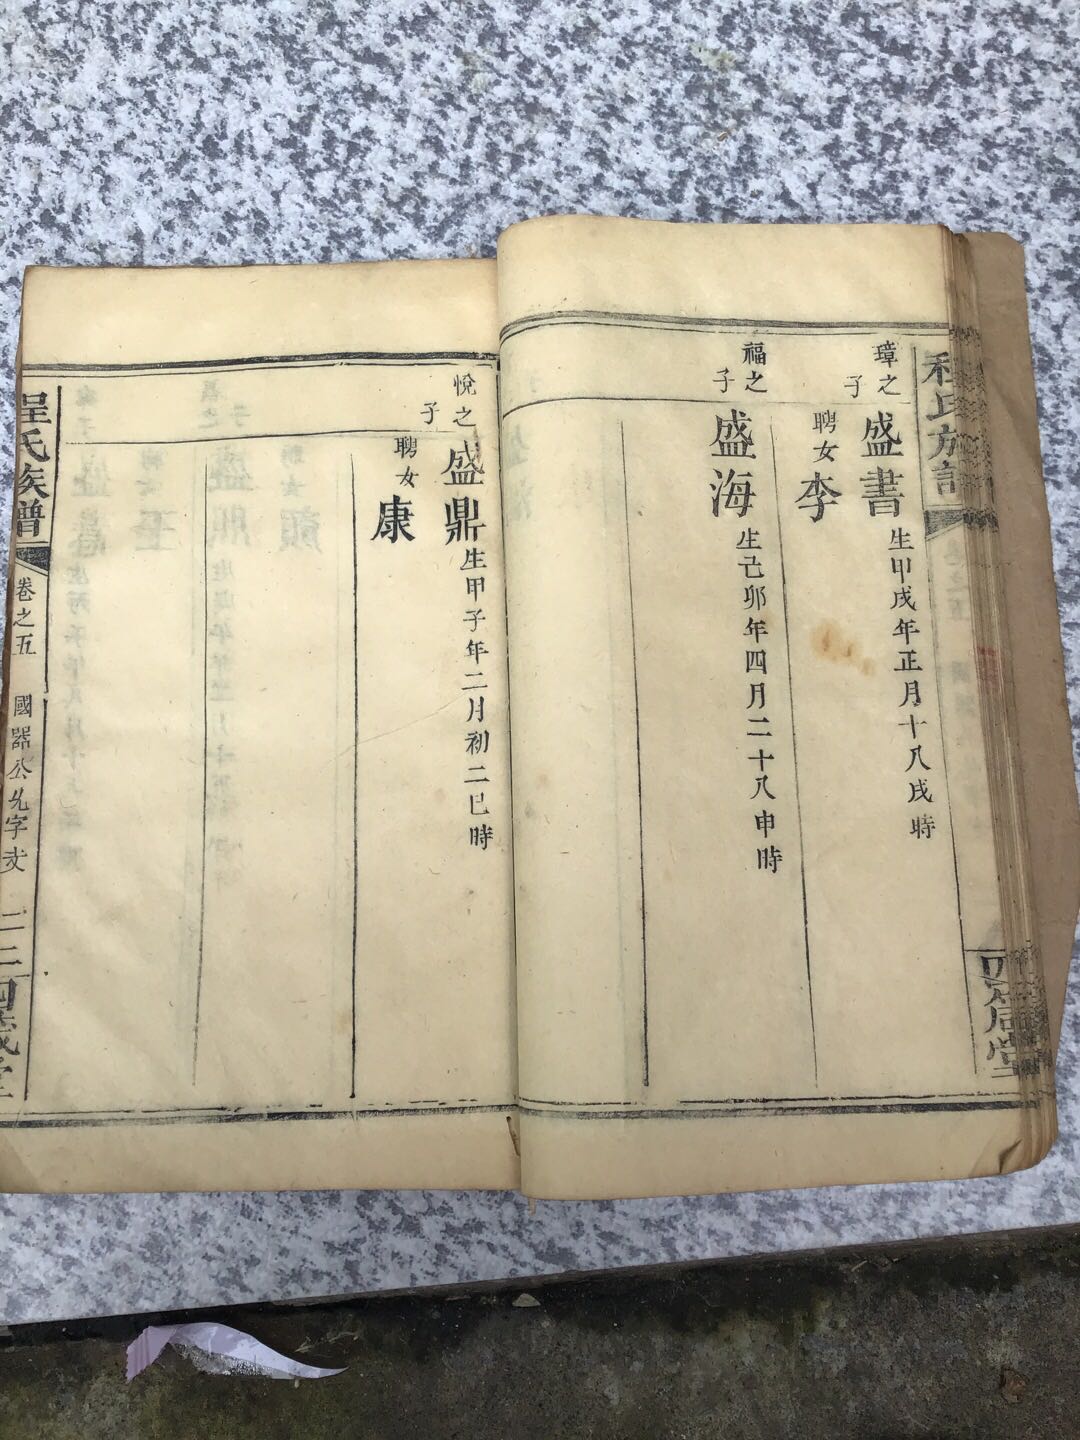 程氏族譜
璋之子
盛書生甲戌年正月十八戌時
聘女李
福之子
盛海生己卯年四月二十八申時
悅之子
盛鼎生甲子年二月初二巳時
聘女康
程氏族譜
卷之五
國器公
字